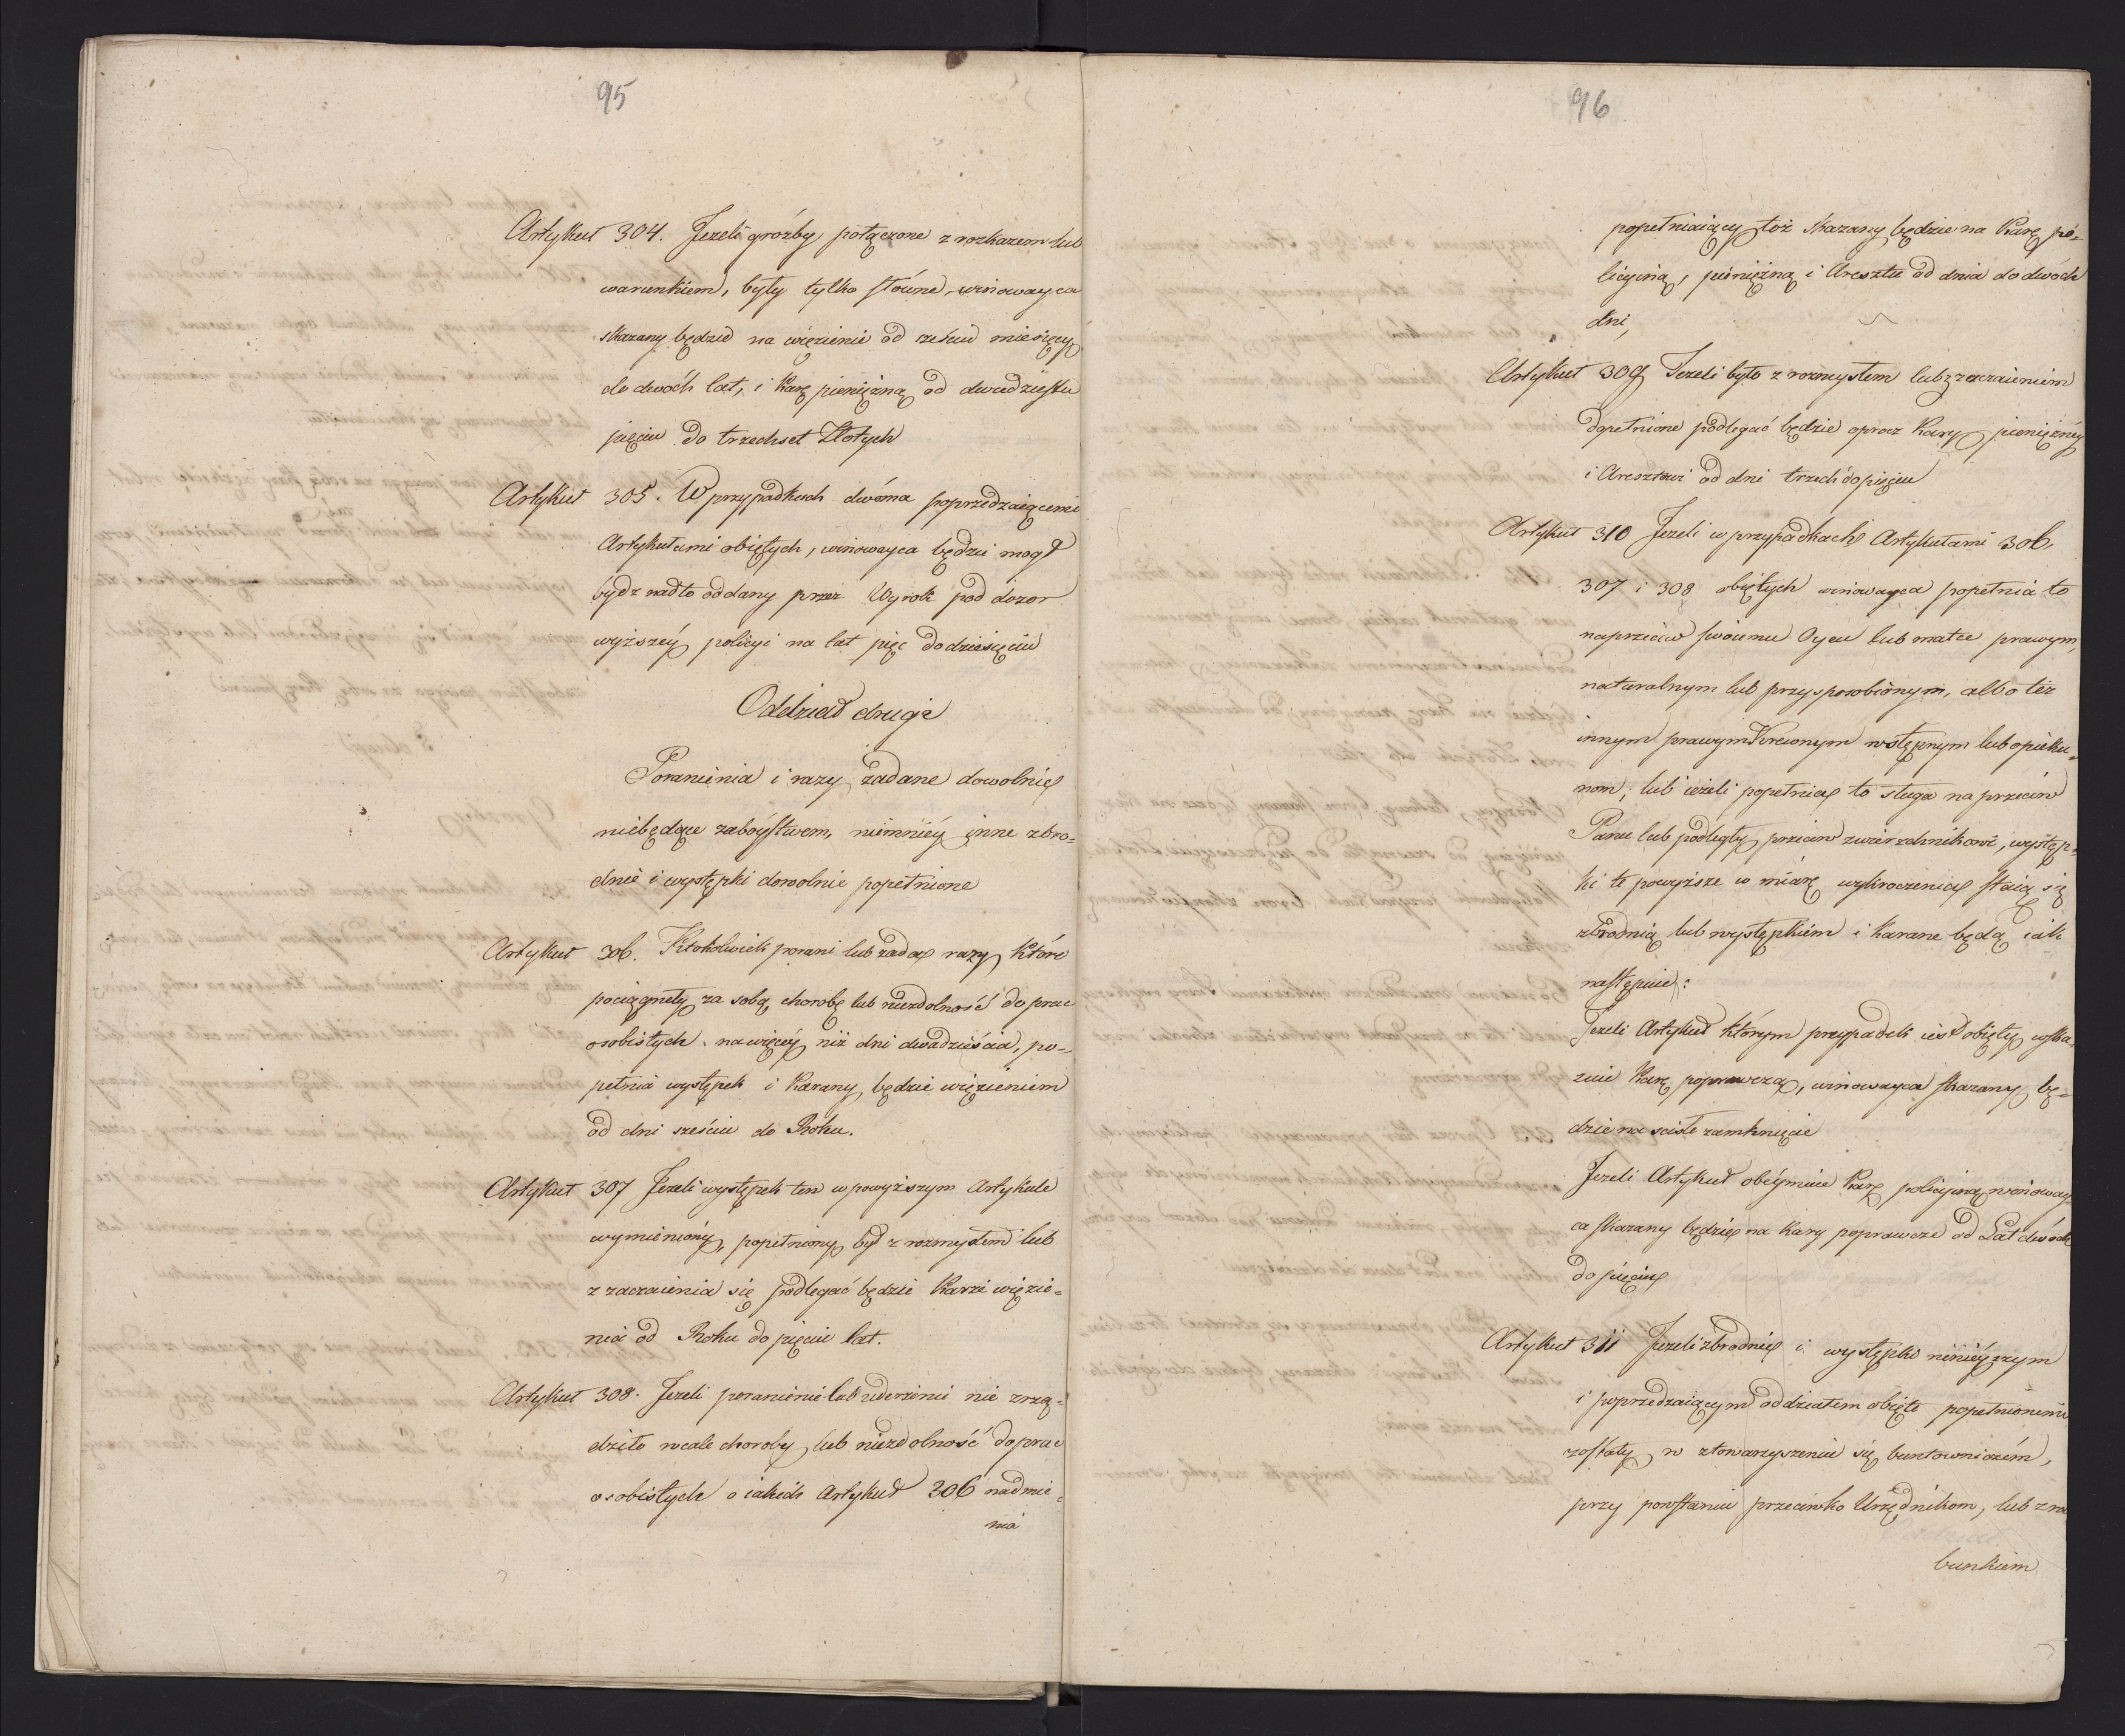 95
Artykuł 304. Jezeli gróźby połączone z rozkazem lub
warunkiem, były tylko słówne, winowayca
skazany będzie na więzienie od sześciu miesięcy
do dwóch lat, i Karę pieniężną od dwudziestu
pięciu do trzechset Złotych
Artykuł 305. W przypadkach dwóma poprzedzaiącemi
Artykułami obiętych, winowayca będzie mogł
bydz nadto oddany przez Wyrok pod dozor
wyższéy policyi na lat pięc do dziesięciu
Oddział drugi
Poranienia i razy zadane dowolnie
niebędące zabóystwem, niemniéy inne zbro-
dnie i występki dowolnie popełnione
Artykuł 306. Ktokolwiek porani lub zada razy, które
pociągnęły za sobą chorobę lub niezdolność do prac
osobistych na więcéy niż dni dwadzieścia, po-
pełnia występek i Karany będzie więzieniem
od dni sześciu do Roku.
Artykuł 307 Jezeli występek ten w powyższym Artykule
wymieniony, popełniony był z rozmysłem lub
z zaczaienia się podlegać będzie Karze więzie-
nia od Roku do pięciu lat.
Artykuł 308. Jezeli poranienie lub uderzenie nie zrzą-
dziło wcale choroby lub niezdolność do prac
osobistych o iakich Artykuł 306 nadmie-
nia
96
popełniaiący toż skazany będzie na Karę po-
licyiną, pieniężną i Aresztu od dnia do dwóch
dni,
Artykuł 309 Jezeli było z rozmysłem lub z zaczaieniem
dopełnione podlegać będzie oprocz Kary pieniężnéy
i Aresztowi od dni trzech do pięciu
Artykuł 310 Jezeli w przypadkach Artykułami 306,
307 i 308 obiętych winowayca popełnia to
naprzeciw swoiemu Oycu lub matce prawym,
naturalnym lub przysposobionym, albo też
innym prawym Krewnym wstępnym lub opieku-
nom; lub ieżeli popełnia to sługa naprzeciw
Panu lub podległy przeciw zwierzchnikowi, występ-
ki te powyższe w miarę wykroczenia staią się
zbrodnią lub występkiem i Karane będą iak
następuie:
Jezeli Artykuł którym przypadek iest obięty wska-
zuie Karę poprawczą, winowayca skazany bę-
dzie na sciste zamknięcie
Jezeli Artykuł obéymuie Karę policyiną winoway
ca skazany będzie na Kary poprawcze od Lat dwóch
do pięciu
Artykuł 311 Jezeli zbrodnie i występki ninieyszym
i poprzedzaiącym oddziałem obięte popełnionemi
zostały w stowarzyszeniu się buntowniczém,
przy powstaniu przeciwko Urzędnikom, lub z ra
bunkiem